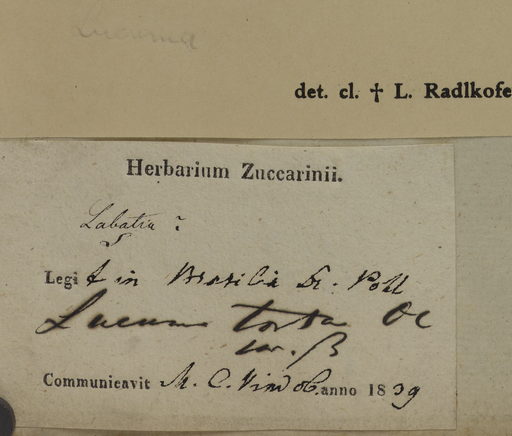 Lucuma
det. cl. † L. Radlkofe
Herbarium Zuccarinii.
Labatia ?
Legit in Brasilia Dr. Pohl
Lucuma torta DC
var. β
Communicavit M. C. Vindob. anno 1839